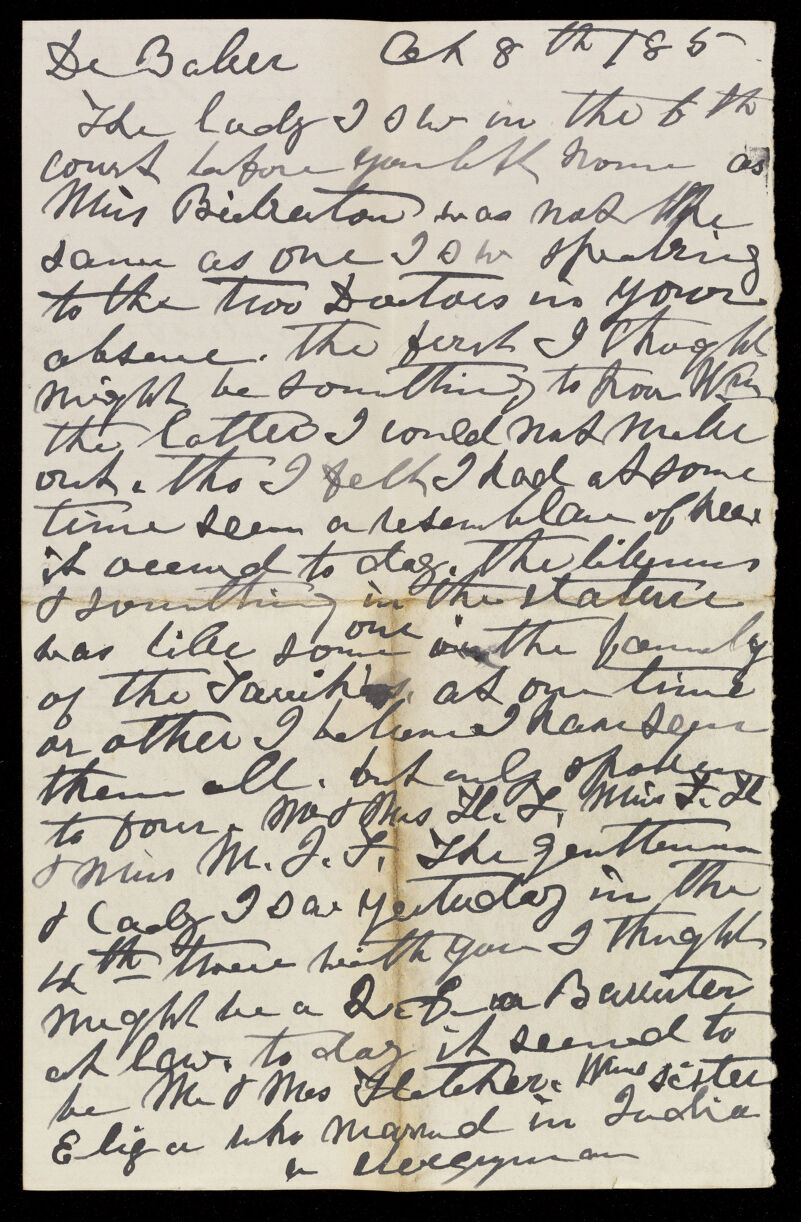 Dr Baker Oct 8th 185
The lady I sw in the 6th
court before you left home as
Miss Bickerton was not the
same as one I sw speaking
to the two Doctors in your
absene. the first I thoght
might be something to poor Wm
the latter I could not make
out. tho I felt I had at some
time seen a resemblane of her
it seemd to day. the likeness
& something in the stature
was like some one in the family
of the at one time
or other I believe I have seen
them all. but only spoken
to four. Mr & Mrs H. F. Miss F. H
& Miss M. J. F. The gentleman
& Lady I saw yesterday in the
4th with you I thoght
might be a Q. C. or Barrister
at law. to day it seemd to
be Mr & Mrs Fletcher. Wms sister
Eliza who married in India
a clergyman